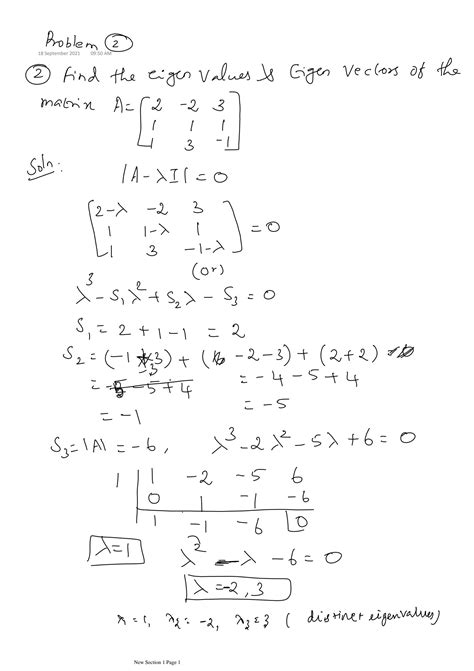 Problem ②
18 September 2021 09:50 AM
② Find the eigen values & Eigen vectors of the
matrix A= [2 -2 3
1 1 1
1 3 -1]
Soln:
|A-λI| = 0
[2-λ -2 3
1 1-λ 1
1 3 -1-λ] = 0
(or)
λ³ - S₁λ² + S₂λ - S₃ = 0
S₁ = 2 + 1 - 1 = 2
S₂ = (-1 -3) + (-2-3) + (2+2)
= -5+4 = -4 -5 +4
= -1 = -5
S₃ = |A| = -6, λ³ - 2λ² - 5λ + 6 = 0
1 | 1 -2 -5 6
0 1 -1 -6
1 -1 -6 |0
λ=1 λ² - λ - 6 = 0
λ = -2, 3
λ = 1, λ₂ = -2, λ₃ = 3 ( distinct eigenvalues)
New Section 1 Page 1